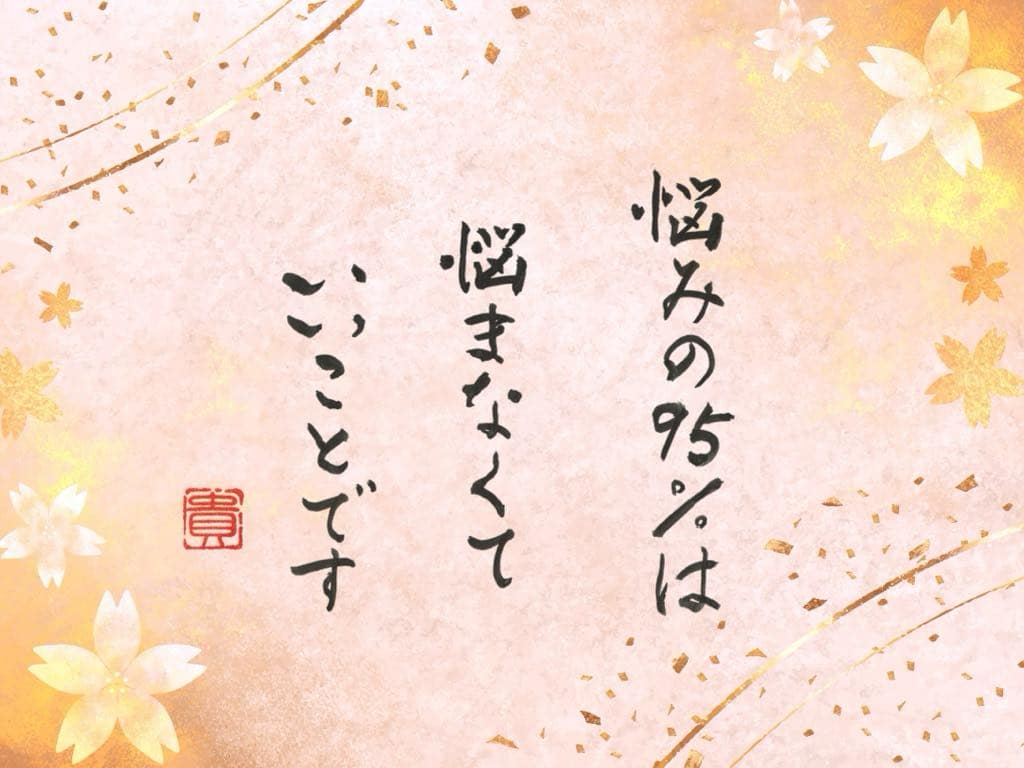 悩みの95%は
悩まなくて
いいことです
貴